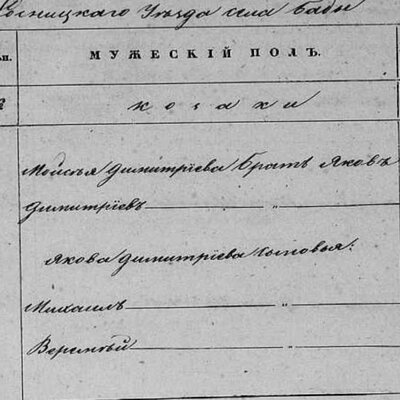 Сосницкаго Уѣзда села Бабы
МУЖЕСКІЙ ПОЛЪ.
козаки
Мойсѣя Димитріева Братъ Яковъ
Димитріевъ — „
Якова Димитріева сыновья:
Михаилъ — „
Веремѣй — „